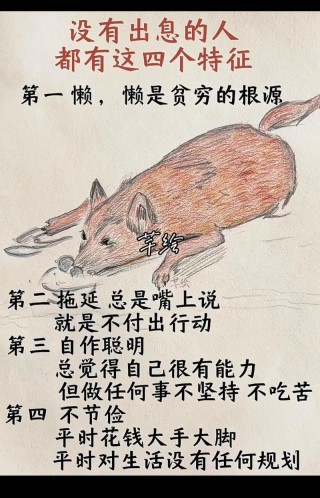 没有出息的人
都有这四个特征
第一 懒，懒是贫穷的根源
芊绘
第二 拖延 总是嘴上说
就是不付出行动
第三 自作聪明
总觉得自己很有能力
但做任何事不坚持 不吃苦
第四 不节俭
平时花钱大手大脚
平时对生活没有任何规划